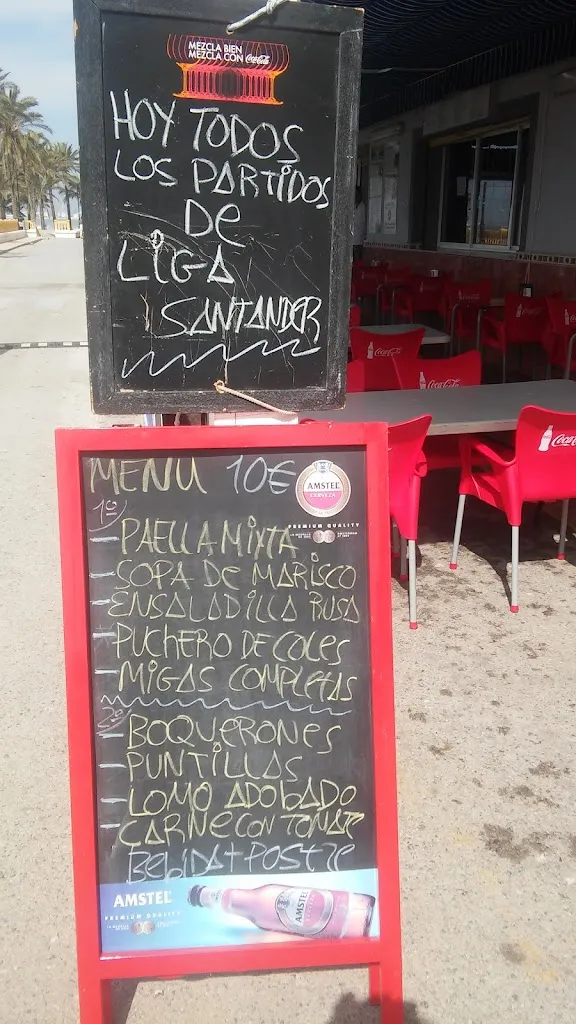 MEZCLA BIEN
MEZCLA CON Coca-Cola
HOY TODOS
LOS PARTIDOS
DE
LIGA
SANTANDER
MENU 10€
AMSTEL
CERVEZA
PREMIUM QUALITY
1º
- PAELLA MIXTA
- SOPA DE MARISCO
- ENSALADILLA RUSA
- PUCHERO DE COLES
- MIGAS COMPLETAS
2º
- BOQUERONES
- PUNTILLAS
- LOMO ADObADO
- CARNE CON TOMATE
BEbIDA + POSTRE
AMSTEL
PREMIUM QUALITY
AMSTEL
Coca-Cola
Coca-Cola
Coca-Cola
Coca-Cola